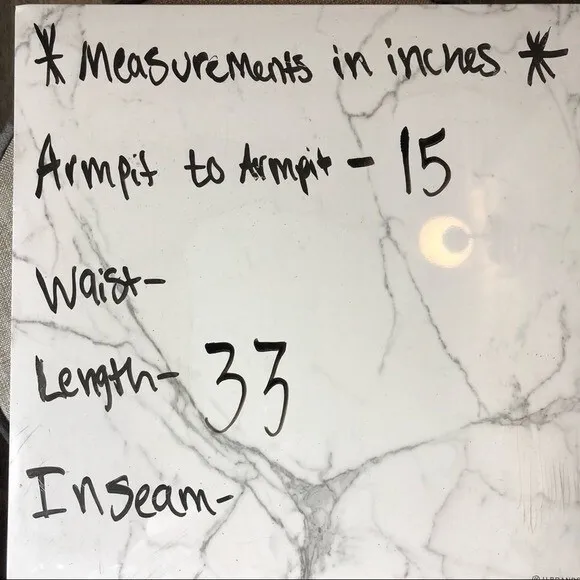 * Measurements in inches *
Armpit to Armpit - 15
Waist-
Length- 33
Inseam-